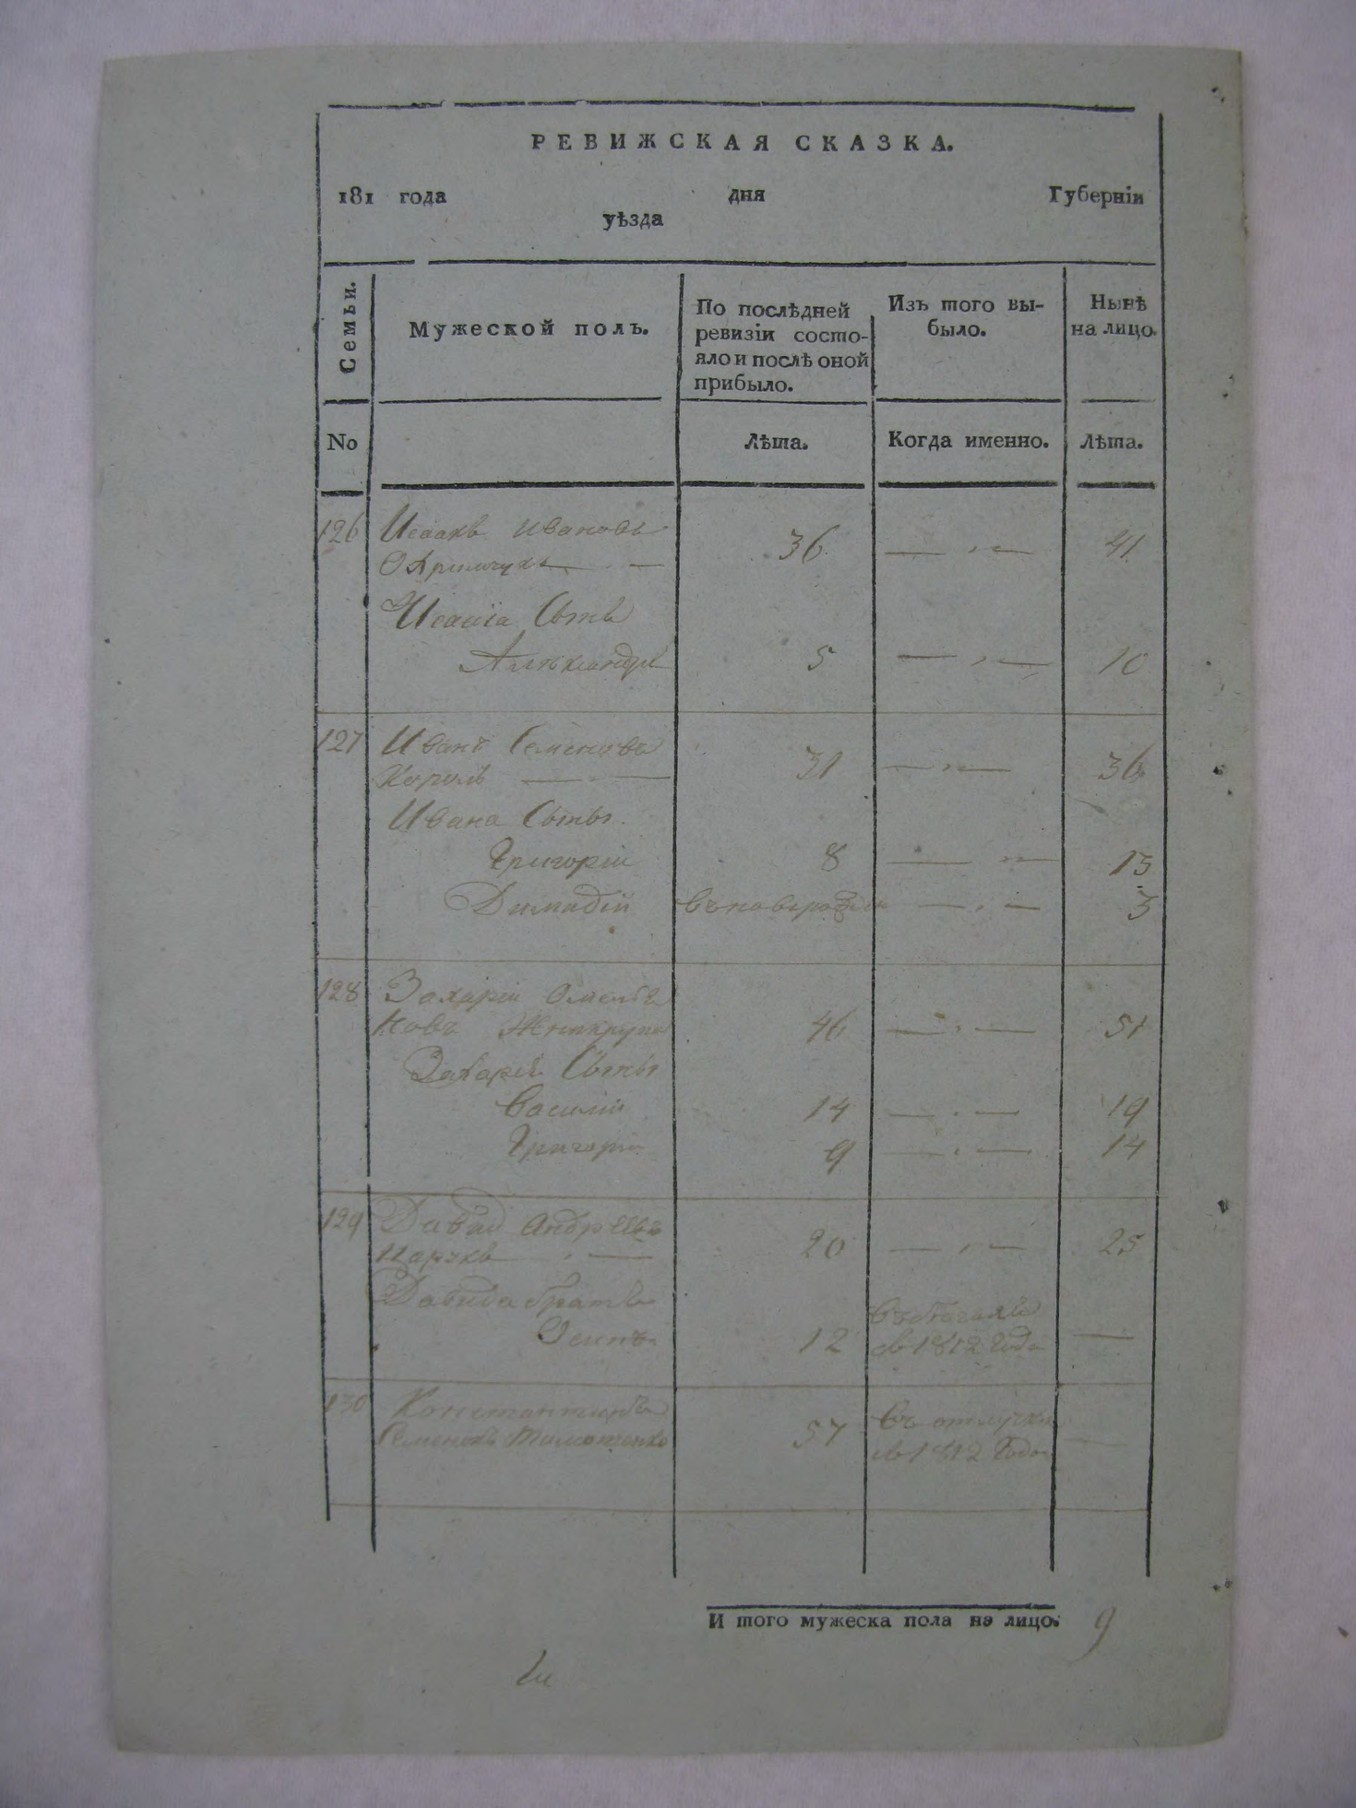 РЕВИЖСКАЯ СКАЗКА.
181 года дня Губерніи
уѣзда
Семьи.
Мужеской полъ.
По послѣдней
ревизіи состо-
яло и послѣ оной
прибыло.
Изъ того вы-
было.
Нынѣ
на лицо.
No
Лѣта.
Когда именно.
Лѣта.
126 Исаакъ Ивановъ
36 41
Исаакa Сынъ
Александръ 5 10
127 Иванъ Семеновъ
Король 31 36
Ивана Сыны
Григорій 8 13
3
128 Захарій Омелья
новъ 46 51
Захарія Сыны
Василій 14 19
Григорій 9 14
129 Давид Андреевъ
20 25
Давида братъ
Осипъ 12 въ 1812 года
130 Константинъ
57 въ отлучке
въ 1812 Года
И того мужеска пола на лицо. 9